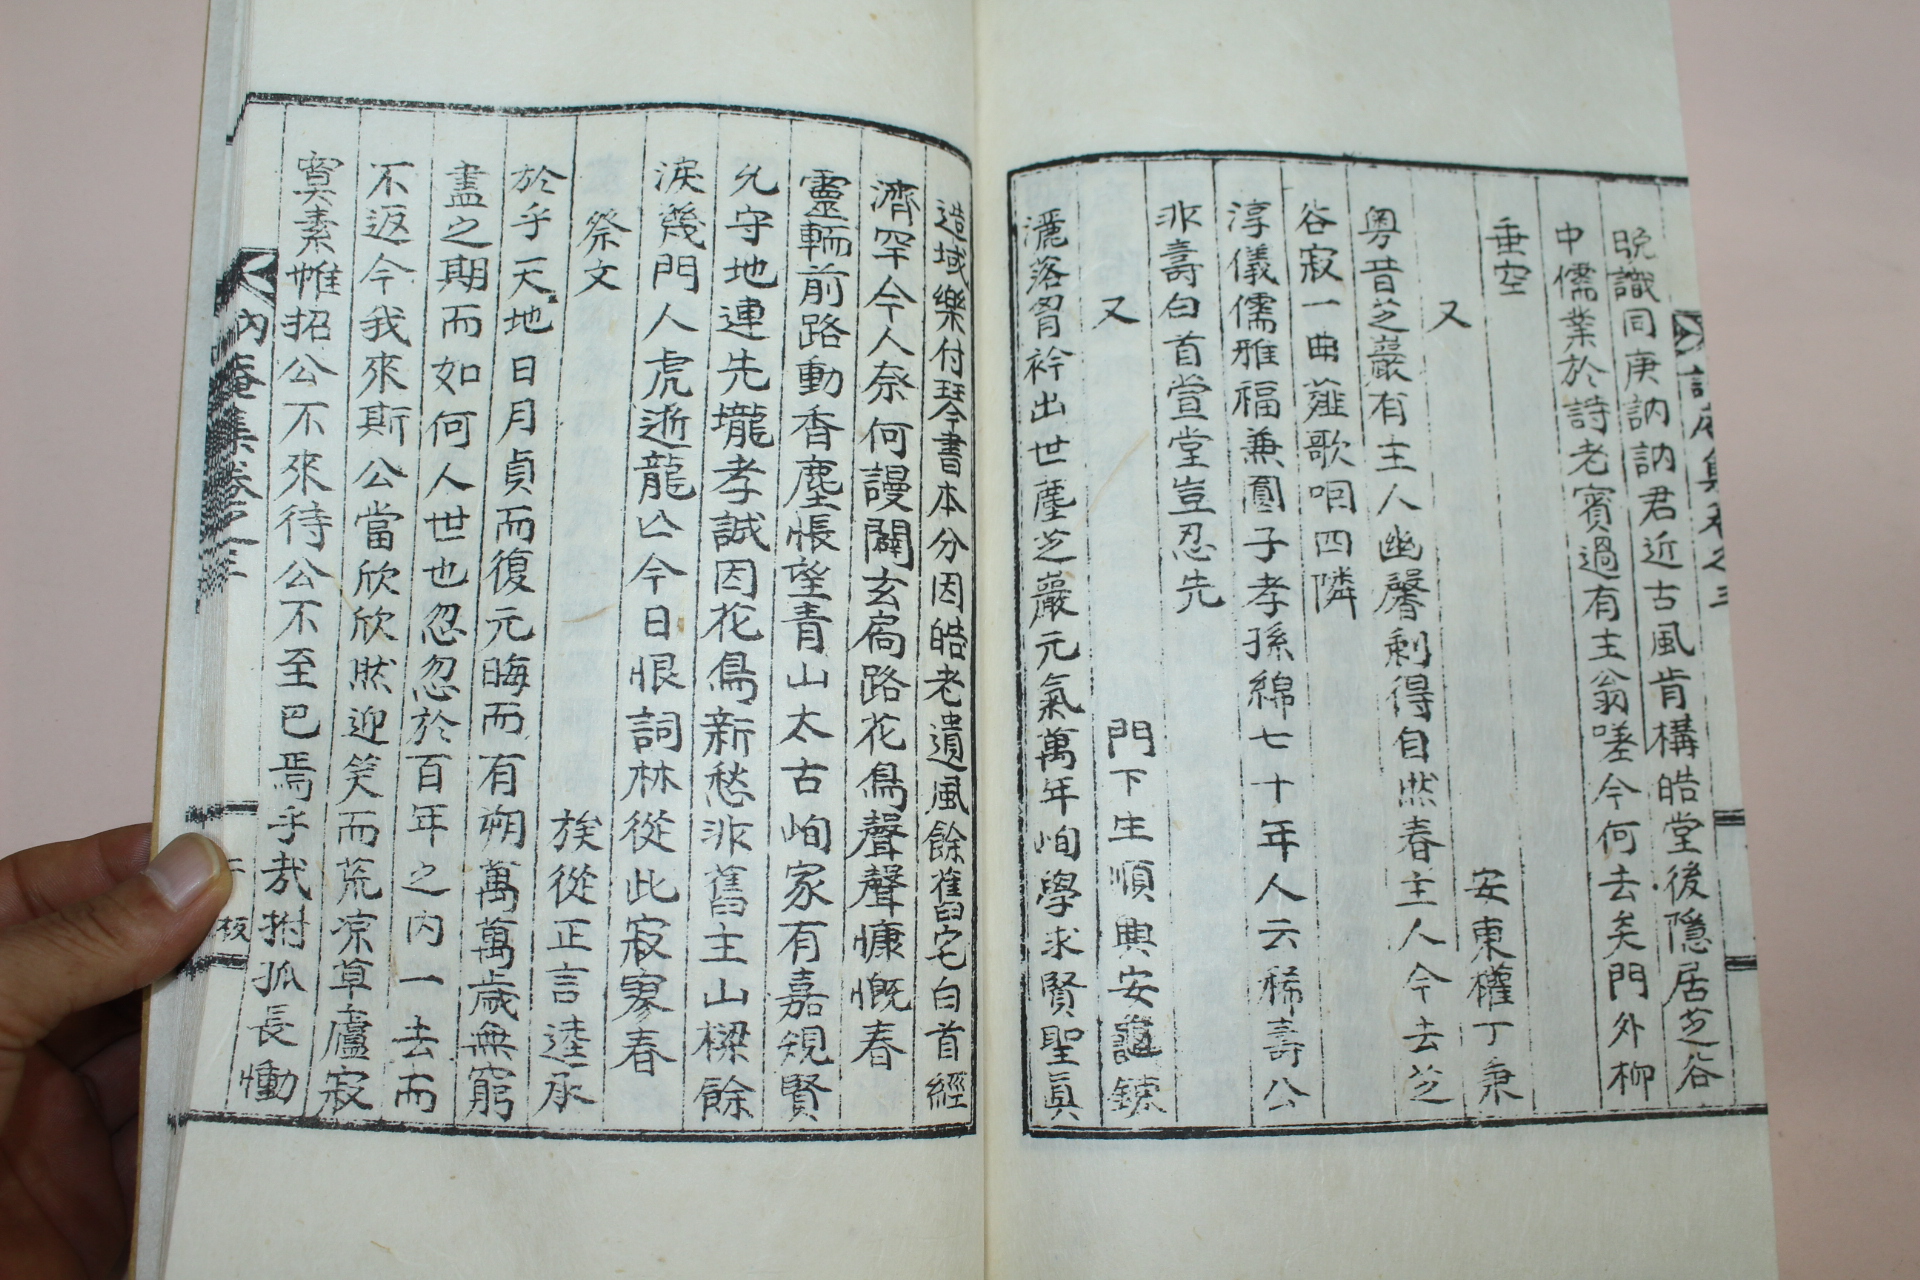 晩識同庚訥訥君近古風肯構皓堂後隱居芝谷
中儒業於詩老賓過有主翁嗟今何去矣門外柳
垂空
又
安東權丁秉
粤昔芝巖有主人幽馨剩得自然春主人今去芝
谷寂一曲薤歌咽四隣
淳儀儒雅福兼圓子孝孫綿七十年人云稀壽公
非壽白首萱堂豈忍先
又
門下生順興安鍊
灑落胷衿出世塵芝巖元氣萬年峋學求賢聖眞
造域樂付琴書本分因皓老遺風餘舊宅白首經
濟罕今人奈何謾闢玄扃路花鳥聲聲慷慨春
靈輀前路動香塵悵望青山太古峋家有嘉規賢
允守地連先壠孝誠因花鳥新愁非舊主山樑餘
淚幾門人虎逝龍亾今日恨詞林從此寂寥春
族從正言逵承
祭文
於乎天地日月貞而復元晦而有朔萬萬歲無窮
盡之期而如何人世也忽忽於百年之內一去而
不返今我來斯公當欣欣然迎笑而荒凉草廬寂
寞素帷招公不來待公不至巴焉乎哉拊孤長慟
內庵集卷之三
二
板